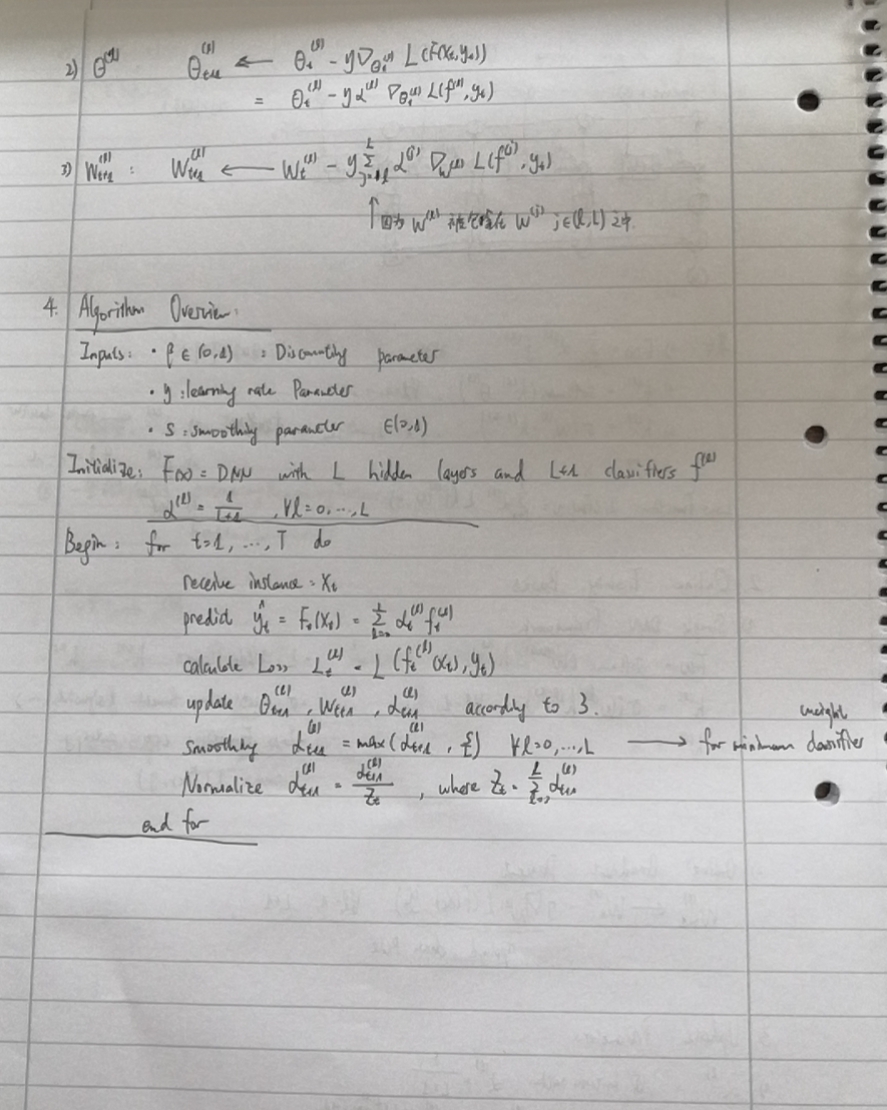 2) θ^(l)   θ_{t+1}^(l) ← θ_t^(l) - η∇_{θ_t^(l)} L(F(x_t, y_t))
= θ_t^(l) - η α^(l) ∇_{θ_t^(l)} L(f^(l), y_t)
3) W_{t+1}^(l) : W_{t+1}^(l) ← W_t^(l) - η Σ_{j=l}^{L} α^(j) ∇_{W^(l)} L(f^(j), y_t)
↑因为 W^(l) 被包含在 W^(j) j∈(l,L) 之中
4. Algorithm Overview:
Inputs: · β ∈ (0,1) : Discounting parameter
· η : learning rate Parameter
· s : smoothing parameter ∈(0,1)
Initialize: F(x) = DNN with L hidden layers and L+1 classifiers f^(l)
α^(l) = 1/(L+1) , ∀l = 0, ..., L
Begin: for t=1, ..., T do
receive instance : x_t
predict ŷ_t = F_t(x_t) = Σ_{l=0}^{L} α_t^(l) f_t^(l)
calculate Loss L_t^(l) = L(f_t^(l)(x_t), y_t)
update θ_{t+1}^(l) , W_{t+1}^(l) , α_{t+1}^(l) according to 3.
smoothing α_{t+1}^(l) = max(α_{t+1}^(l) , s/L) ∀l=0, ..., L → for minimum weight classifier
Normalize α_{t+1}^(l) = α_{t+1}^(l)/Z_t , where Z_t = Σ_{l=0}^{L} α_{t+1}^(l)
end for